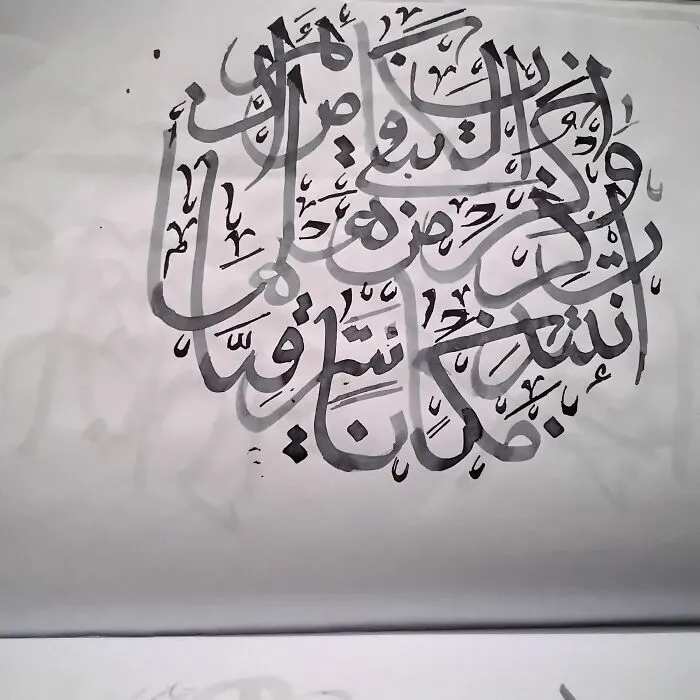 واذكر في الكتاب مريم إذ انتبذت من أهلها مكانا شرقيا